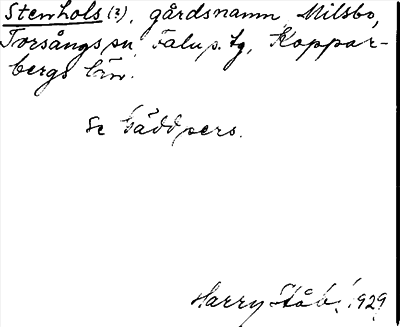 Stenhols (?), gårdsnamn, Milsbo,
Torsångs sn, Falu s. tg, Koppar-
bergs län.
Se Gäddpers.
Harry Ståhl 1929